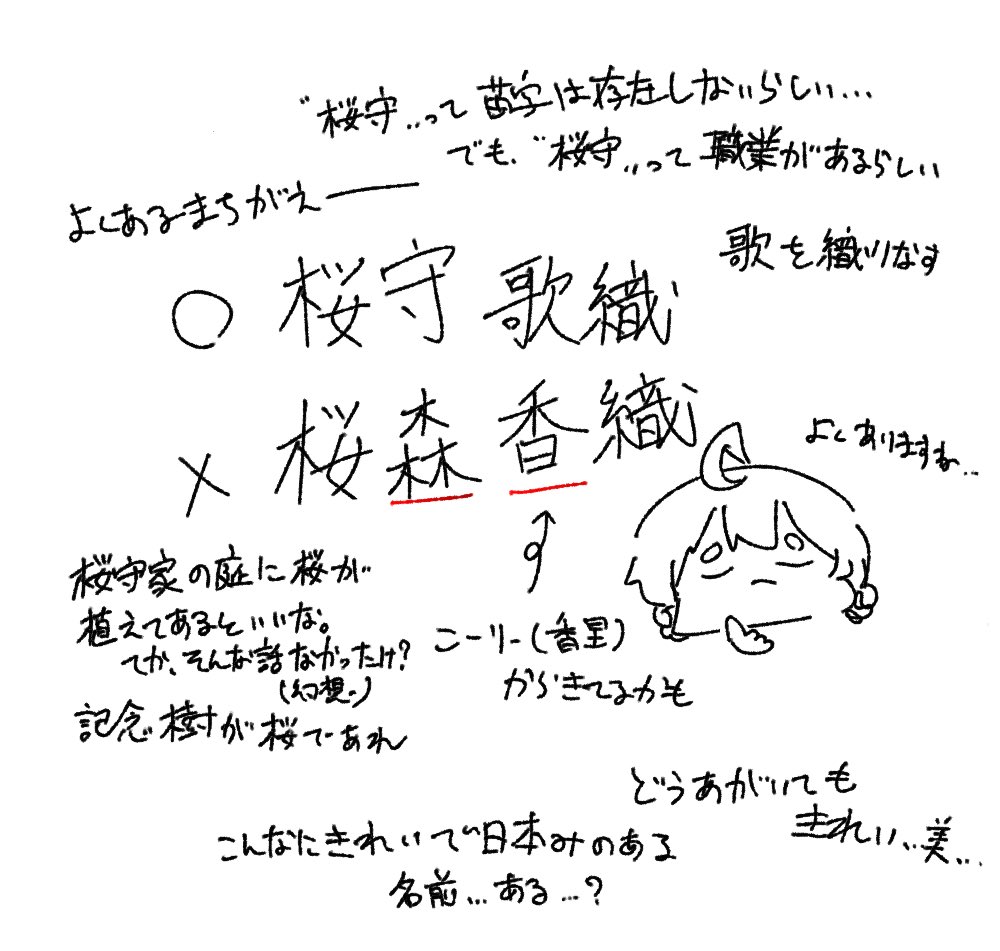 "桜守"って苗字は存在しないらしい…
でも、"桜守"って職業があるらしい
よくあるまちがえ――
歌を織りなす
○ 桜守 歌織
× 桜森 香織
よくありますね…
桜守家の庭に桜が
植えてあるといいな。
てか、そんな話なかったけ?
(幻想…)
記念樹が桜であれ
こーりー(香里)
からきてるかも
どうあがいても
きれい…美…
こんなにきれいで日本みのある
名前…ある…?